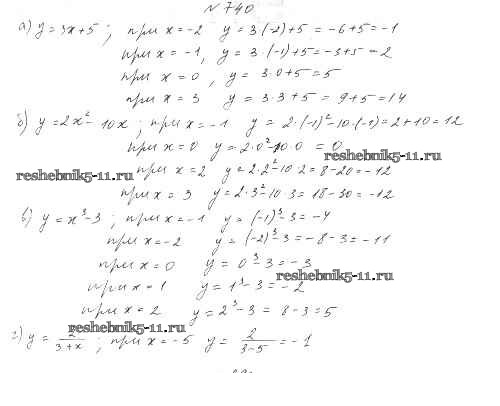 N 740
а) y = 3x+5; при x=-2 y = 3·(-2)+5 = -6+5 = -1
при x = -1, y = 3·(-1)+5 = -3+5 = 2
при x = 0, y = 3·0+5 = 5
при x = 3 y = 3·3+5 = 9+5 = 14
б) y = 2x² - 10x; при x = -1 y = 2·(-1)² - 10·(-1) = 2+10 = 12
при x = 0 y = 2·0² - 10·0 = 0
reshebnik5-11.ru
reshebnik5-11.ru при x = 2 y = 2·2² - 10·2 = 8-20 = -12
при x = 3 y = 2·3² - 10·3 = 18-30 = -12
в) y = x³-3; при x = -1 y = (-1)³-3 = -4
при x = -2 y = (-2)³-3 = -8-3 = -11
при x = 0 y = 0³-3 = -3
reshebnik5-11.ru
при x = 1 y = 1³-3 = -2
при x = 2 y = 2³-3 = 8-3 = 5
reshebnik5-11.ru
г) y = 2/(3+x); при x = -5 y = 2/(3-5) = -1